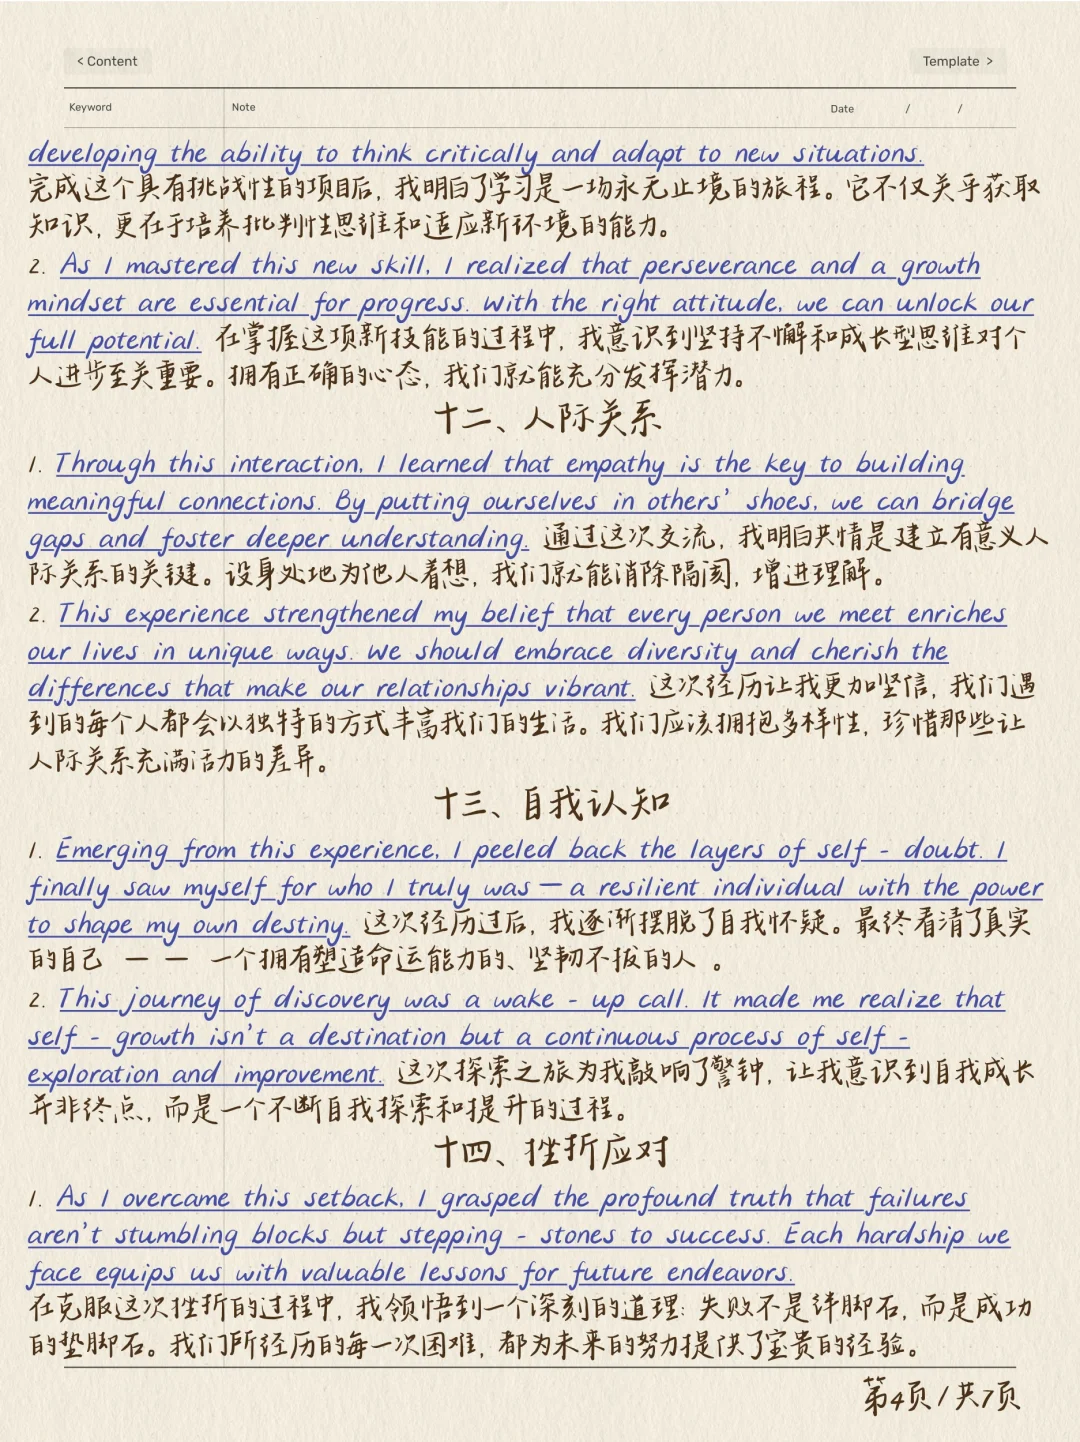 < Content
Template >
Keyword
Note
Date / /
developing the ability to think critically and adapt to new situations.
完成这个具有挑战性的项目后，我明白了学习是一场永无止境的旅程。它不仅关乎获取
知识，更在于培养批判性思维和适应新环境的能力。
2. As I mastered this new skill, I realized that perseverance and a growth
mindset are essential for progress. With the right attitude, we can unlock our
full potential. 在掌握这项新技能的过程中，我意识到坚持不懈和成长型思维对个
人进步至关重要。拥有正确的心态，我们就能充分发挥潜力。
十二、人际关系
1. Through this interaction, I learned that empathy is the key to building
meaningful connections. By putting ourselves in others' shoes, we can bridge
gaps and foster deeper understanding. 通过这次交流，我明白共情是建立有意义人
际关系的关键。设身处地为他人着想，我们就能消除隔阂，增进理解。
2. This experience strengthened my belief that every person we meet enriches
our lives in unique ways. We should embrace diversity and cherish the
differences that make our relationships vibrant. 这次经历让我更加坚信，我们遇
到的每个人都会以独特的方式丰富我们的生活。我们应该拥抱多样性，珍惜那些让
人际关系充满活力的差异。
十三、自我认知
1. Emerging from this experience, I peeled back the layers of self - doubt. I
finally saw myself for who I truly was — a resilient individual with the power
to shape my own destiny. 这次经历过后，我逐渐摆脱了自我怀疑。最终看清了真实
的自己 — — 一个拥有塑造命运能力的、坚韧不拔的人 。
2. This journey of discovery was a wake - up call. It made me realize that
self - growth isn't a destination but a continuous process of self -
exploration and improvement. 这次探索之旅为我敲响了警钟，让我意识到自我成长
并非终点，而是一个不断自我探索和提升的过程。
十四、挫折应对
1. As I overcame this setback, I grasped the profound truth that failures
aren't stumbling blocks but stepping - stones to success. Each hardship we
face equips us with valuable lessons for future endeavors.
在克服这次挫折的过程中，我领悟到一个深刻的道理：失败不是绊脚石，而是成功
的垫脚石。我们所经历的每一次困难，都为未来的努力提供了宝贵的经验。
第4页 / 共7页